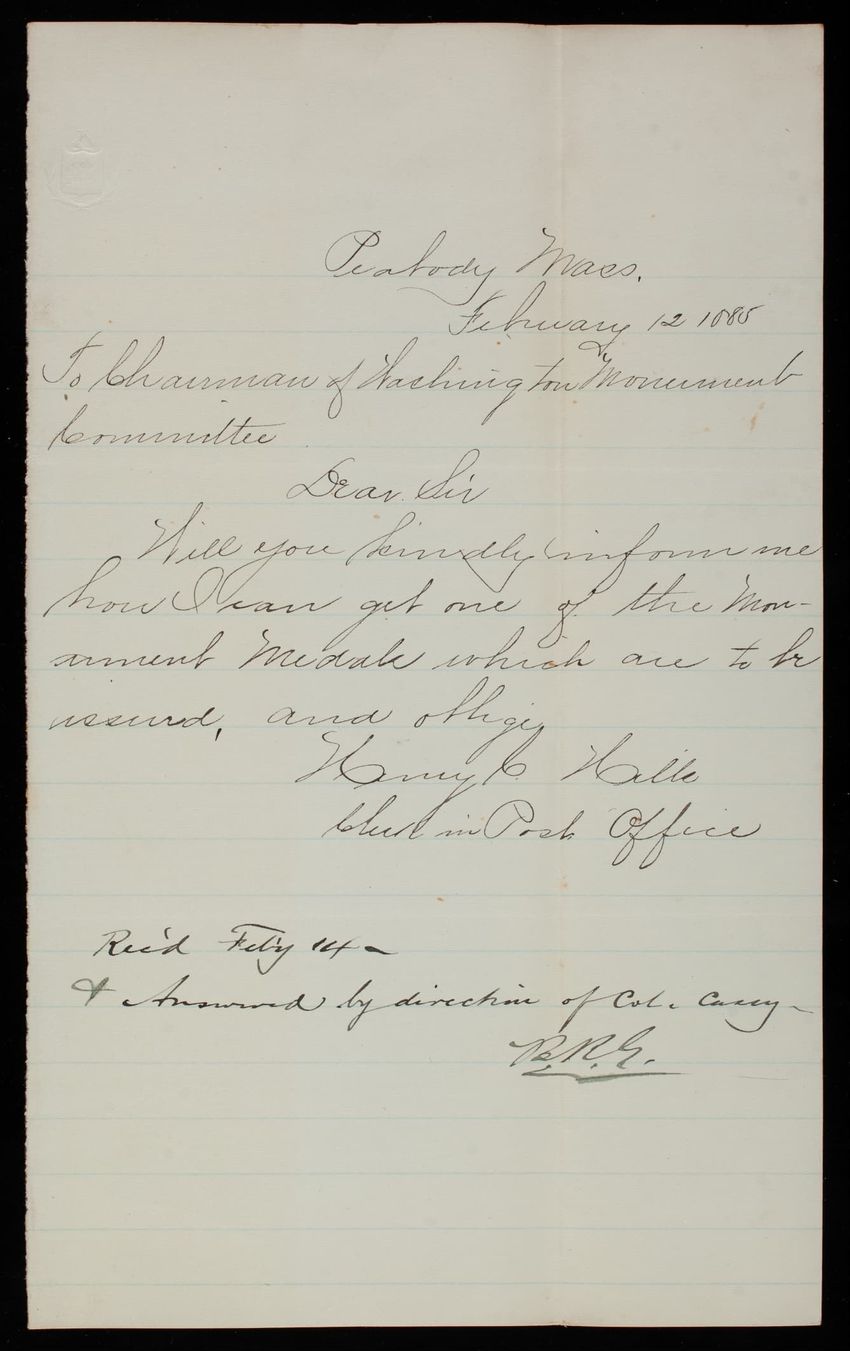 Peabody Mass.
February 12 1885
To Chairman of Washington Monument
Committee
Dear Sir
Will you kindly inform me
how I can get one of the Mon-
ument Medals which are to be
issued, and oblige
Henry C. Hills
Clerk in Post Office
Rec'd Feb'y 14 -
& Answered by direction of Col. Casey -
B.R.G.